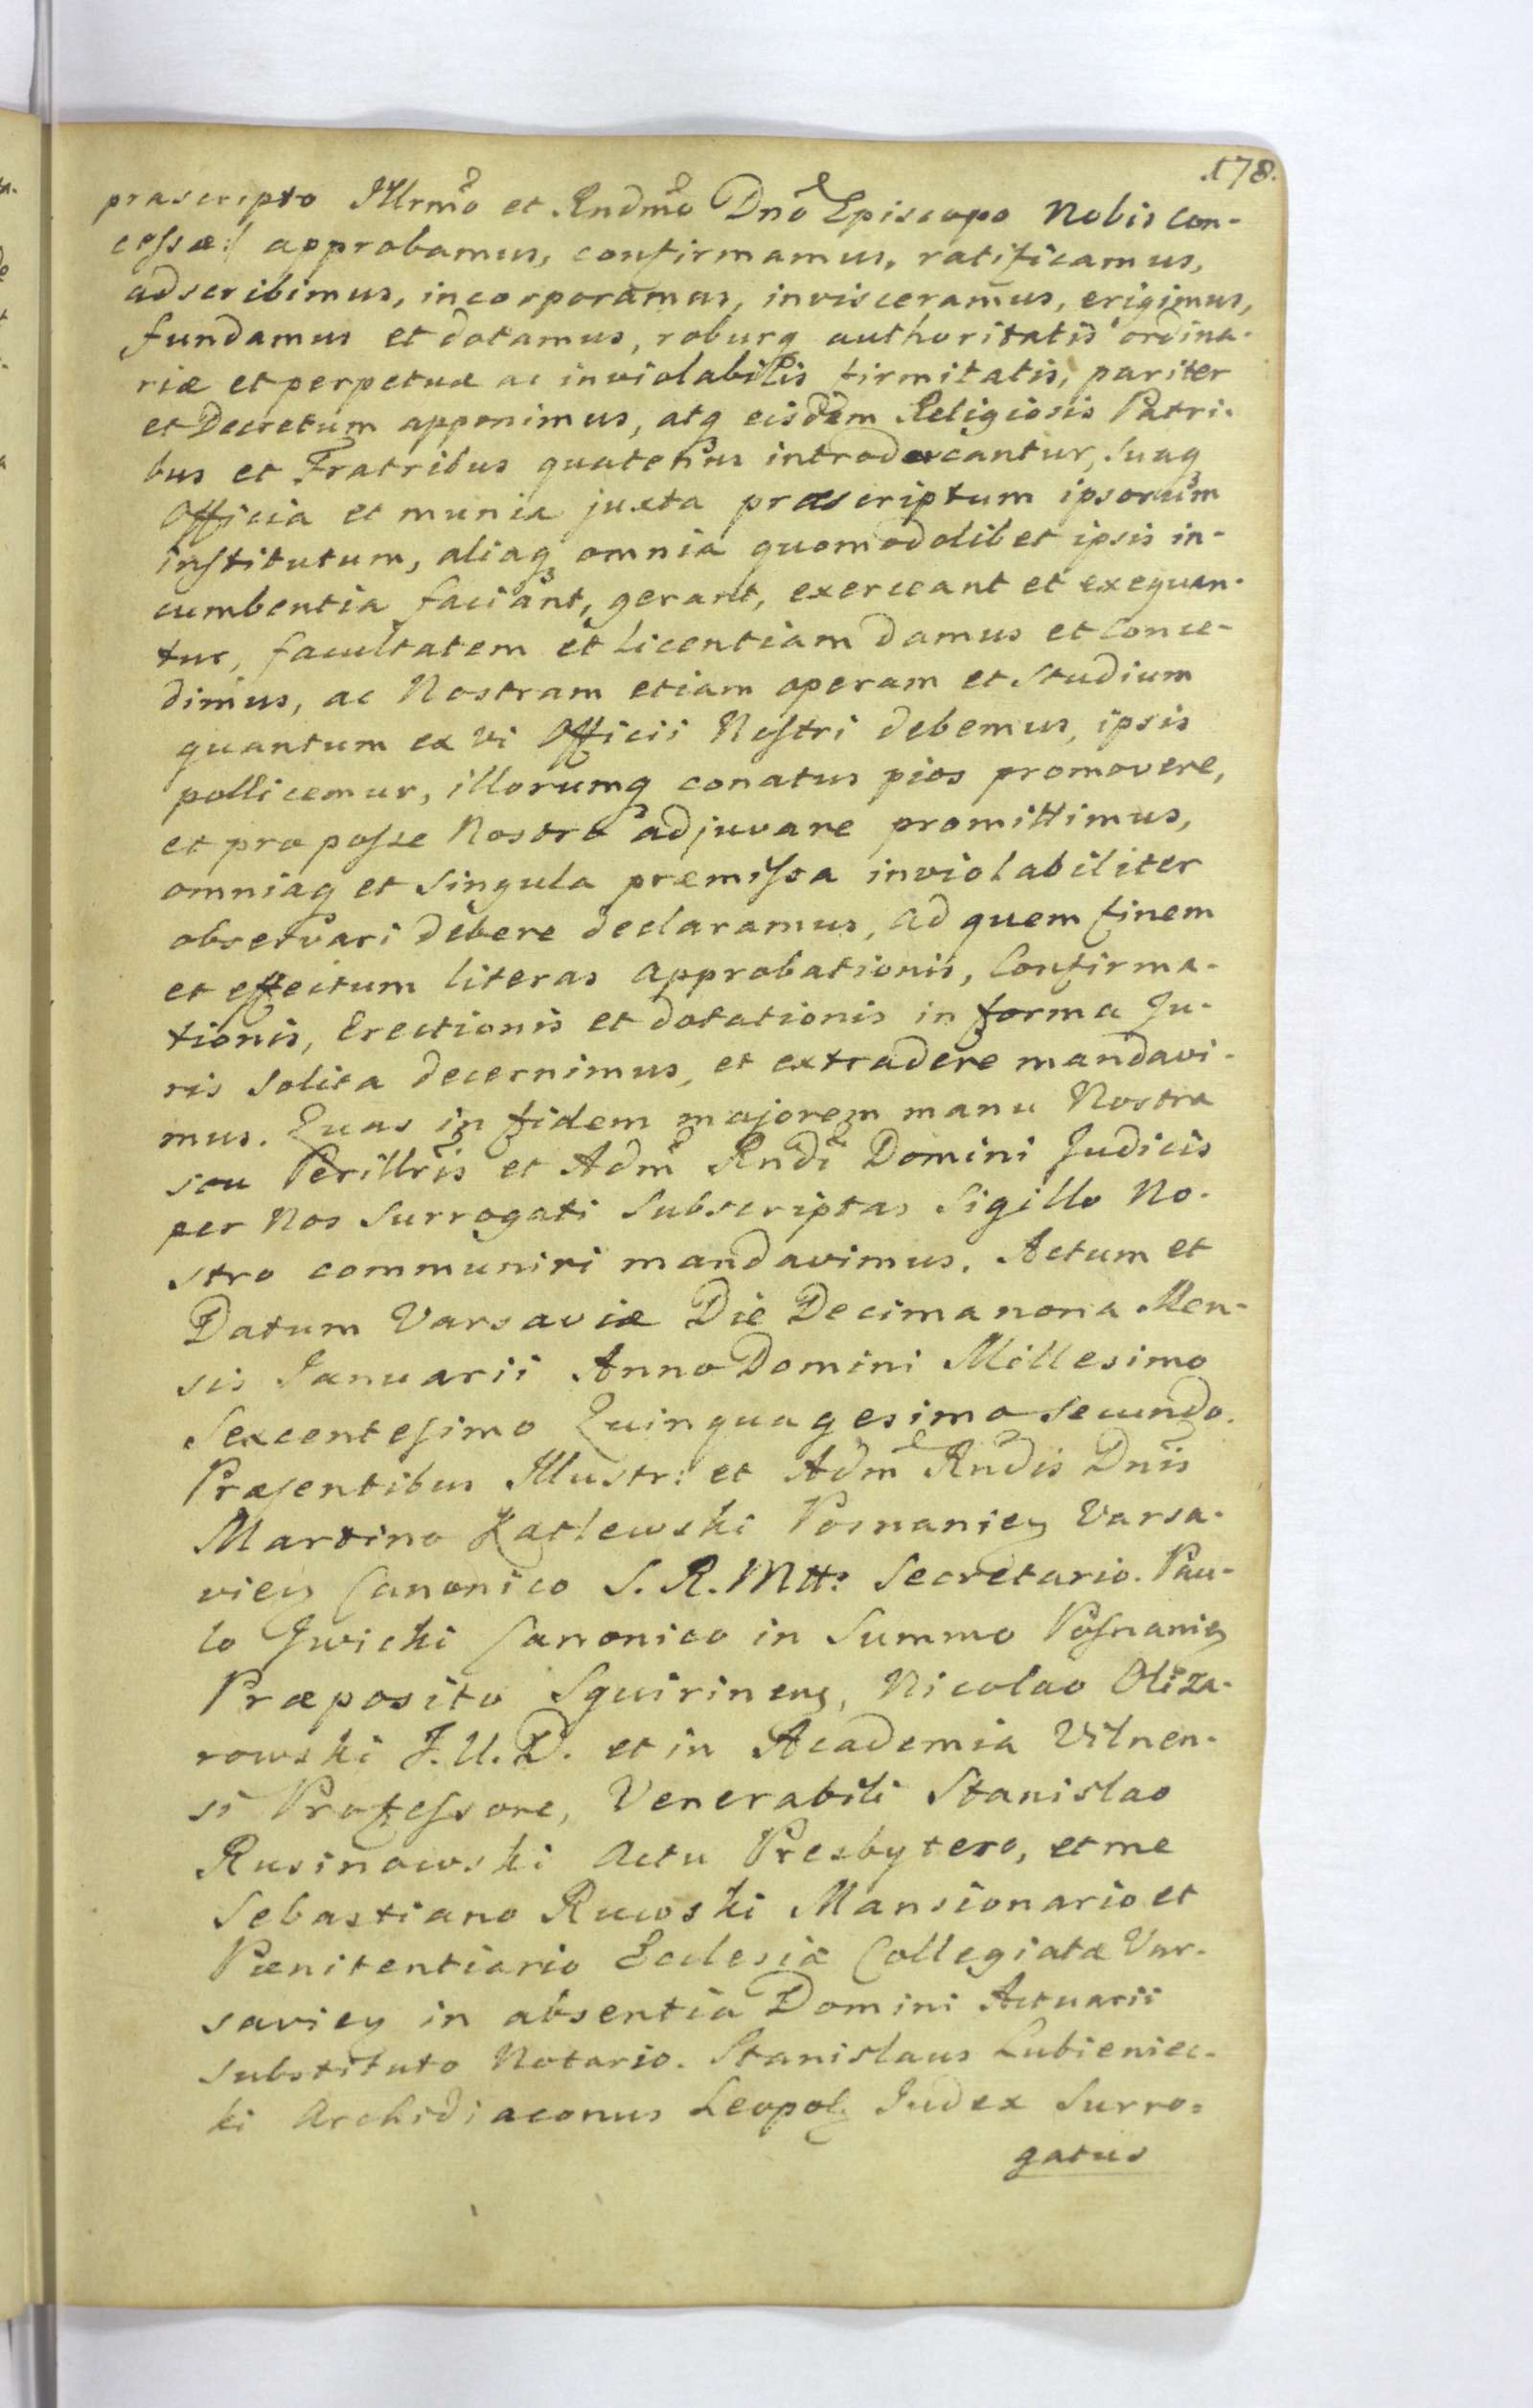 .178.
præscripto Illrmo et Rndmo Dno Episcopo Nobis con-
cessæ:/ approbamus, confirmamus, ratificamus,
adscribimus, incorporamus, invisceramus, erigimus,
fundamus et dotamus, roburq authoritatis ordina-
riæ et perpetuæ ac inviolabilis firmitatis, pariter
et Decretum apponimus, atq eisdem Religiosis Patri-
bus et Fratribus quatenus introducantur, suaq
Officia et munia juxta præscriptum ipsorum
institutum, aliaq omnia quomodolibet ipsis in-
cumbentia faciant, gerant, exerceant et exequan-
tur, facultatem et licentiam damus et conce-
dimus, ac Nostram etiam operam et studium
quantum ex vi Officii Nostri debemus, ipsis
pollicemur, illorumq conatus pios promovere,
et pro posse Nostro adjuvare promittimus,
omniaq et singula præmissa inviolabiliter
observari debere declaramus, ad quem finem
et effectum literas approbationis, Confirma-
tionis, Erectionis et dotationis in forma Ju-
ris solita decernimus, et extradere mandavi-
mus. Quas in fidem majorem manu Nostra
seu Perillris et Adm Rndi Domini Judicis
per Nos Surrogati Subscriptas Sigillo No-
stro communiri mandavimus. Actum et
Datum Varsaviæ Die Decima nona Men-
sis Januarii Anno Domini Millesimo
Sexcentesimo Quinquagesimo secundo.
Præsentibus Illustr: et Adm Rndis Dnis
Martino Posnanien Varsa-
vien Canonico S. R. Mtt: Secretario. Pau-
lo Canonico in Summo Posnanien
Præposito Squirinens, Nicolao Oliza-
rowski J.U.D. et in Academia Vilnen-
si Professore, Venerabili Stanislao
Rusinowski actu Presbytero, et me
Sebastiano Ruwski Mansionario et
Pænitentiario Ecclesiæ Collegiatæ Var-
savien in absentia Domini Actuarii
substituto Notario. Stanislaus Lubieniec-
ki Archidiaconus Leopol Judex Surro=
gatus